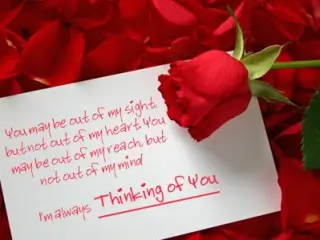 You may be out of my sight,
but not out of my heart. You
may be out of my reach, but
not out of my mind
I'm always Thinking of You